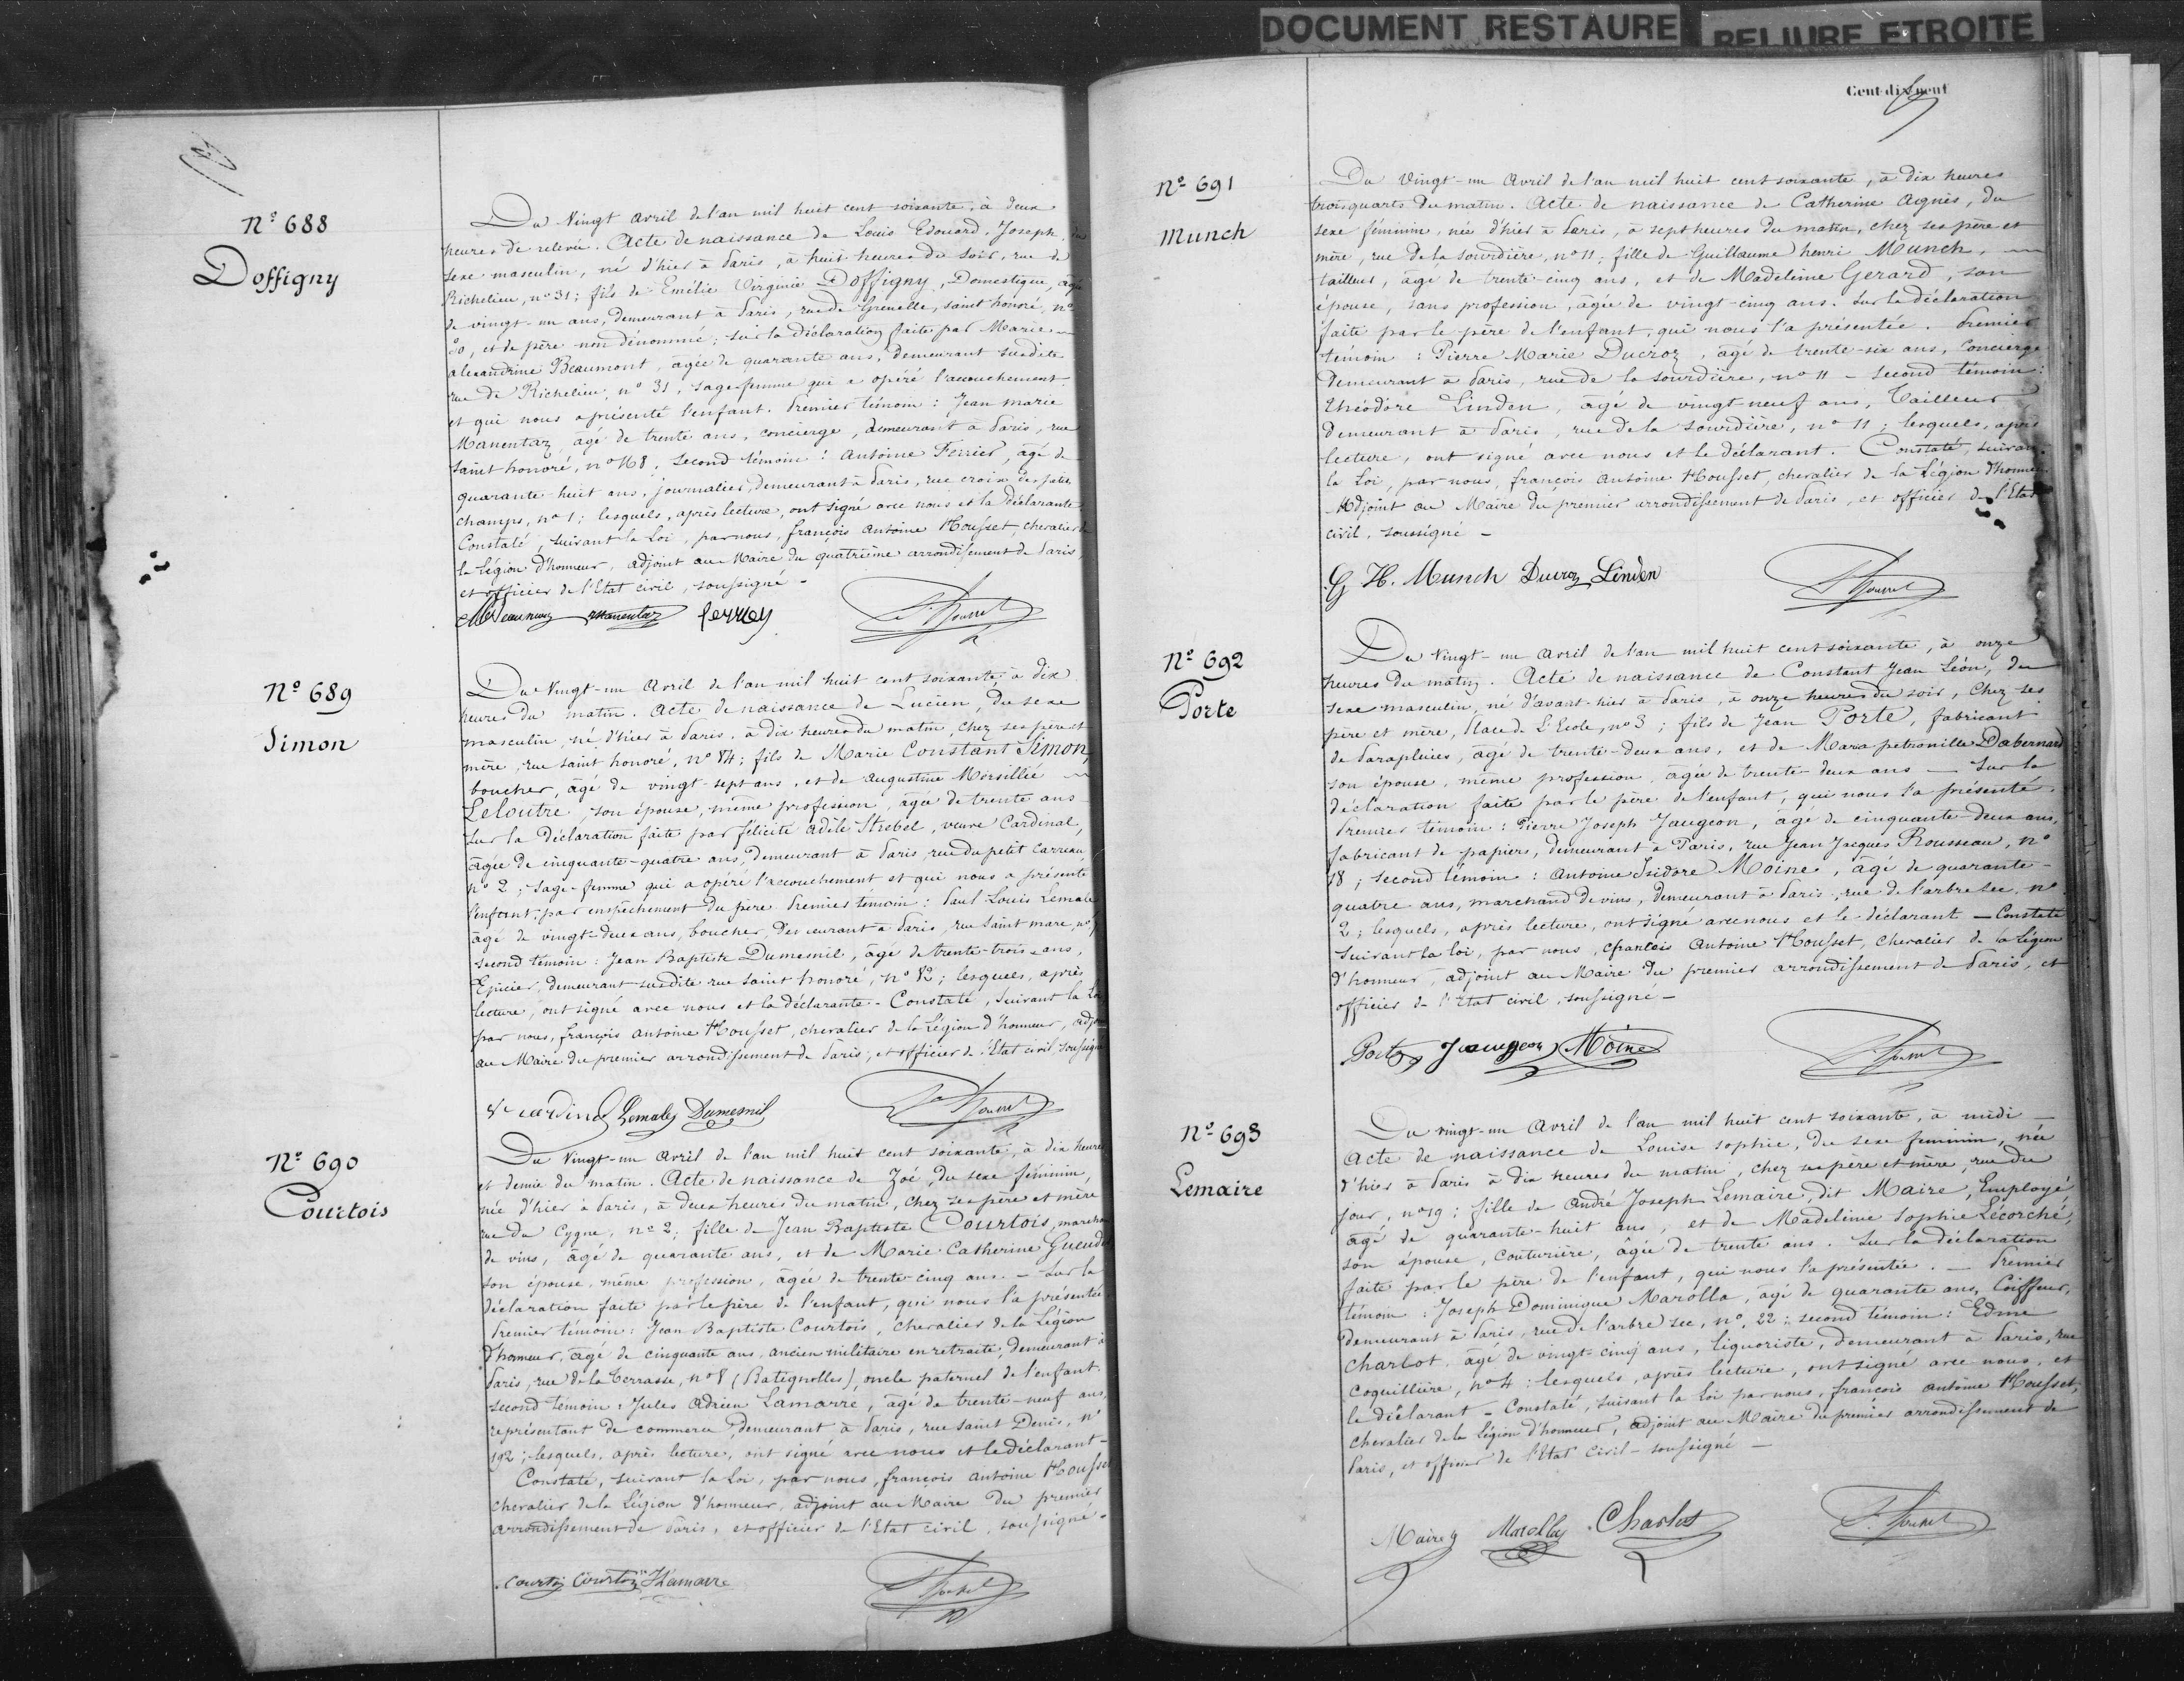 DOCUMENT RESTAURE
RELIURE ETROITE
Nº 688
Doffigny
Du Vingt avril de l'an mil huit cent soixante, à deux
heures de relevée. Acte de naissance de Louis Edouard Joseph, du
sexe masculin, né d'hier à Paris, à huit heures du soir, rue de
Richelieu, nº 31; fils de Emélie Virginie Doffigny, Domestique, âgée
de vingt-un ans, demeurant à Paris, rue de Grenelle, saint honoré, nº
et de père non dénommé; sur la déclaration faite par Marie
alexandrine Beaumont, âgée de quarante ans, demeurant susdite
rue de Richelieu, nº 31, sage-femme qui a opéré l'accouchement
et qui nous a présenté l'enfant. Premier témoin: Jean marie
Manentaz, âgé de trente ans, concierge, demeurant à Paris, rue
saint honoré, nº 168, second témoin: Antoine Ferrier, âgé de
quarante-huit ans, journalier, demeurant à Paris, rue croix des petits
champs, nº 1; lesquels, après lecture, ont signé avec nous et la déclarante
Constaté, suivant la Loi, par nous, françois antoine Housset, chevalier de
la Légion d'honneur, adjoint au Maire du quatrième arrondissement de Paris,
et officier de l'Etat civil, soussigné -
Manentaz ferrier
Nº 689
Simon
Du Vingt-un Avril de l'an mil huit cent soixante, à dix
heures du matin. Acte de naissance de Lucien, du sexe
masculin, né d'hier à Paris, à dix heures du matin, chez ses père et
mère, rue saint honoré, nº 84; fils de Marie Constant Simon,
boucher, âgé de vingt-sept ans, et de augustine Mirsillée
Leloutre, son épouse, même profession, âgée de trente ans
sur la déclaration faite par félicité adèle Strebel, veuve Cardinal,
âgée de cinquante-quatre ans, demeurant à Paris, rue du petit Carreau,
nº 2; sage-femme qui a opéré l'accouchement et qui nous a présenté
l'enfant, par empêchement du père. Premier témoin: Paul-Louis Lemale
âgé de vingt-deux ans, boucher, demeurant à Paris, rue Saint marc, nº
second témoin: Jean Baptiste Dumesnil, âgé de trente-trois ans,
Epicier, demeurant susdite rue saint honoré, nº 82; lesquels, après
lecture, ont signé avec nous et la déclarante. - Constaté, suivant la Loi
par nous, françois antoine Housset, chevalier de la Légion d'honneur, adjoint
au Maire du premier arrondissement de Paris, et officier de l'Etat civil, soussigné
Ve cardinal Lemale Dumesnil
Nº 690
Courtois
Du Vingt-un Avril de l'an mil huit cent soixante, à dix heures
et demie du matin. Acte de naissance de Zoé, du sexe féminin,
née d'hier à Paris, à deux heures du matin, chez ses père et mère
rue du Cygne, nº 2; fille de Jean Baptiste Courtois, marchand
de vins, âgé de quarante ans, et de Marie Catherine
son épouse, même profession, âgée de trente-cinq ans. - Sur la
déclaration faite par le père de l'enfant, qui nous l'a présentée
Premier témoin: Jean Baptiste Courtois, chevalier de la Légion
d'honneur, âgé de cinquante ans, ancien militaire en retraite, demeurant à
Paris, rue de la Terrasse, nº 8 (Batignolles), oncle paternel de l'enfant.
second témoin: Jules Adrien Lamarre, âgé de trente-neuf ans,
représentant de commerce, demeurant à Paris, rue saint Denis, nº
192; lesquels, après lecture, ont signé avec nous et le déclarant -
Constaté, suivant la Loi, par nous, françois antoine Housset
chevalier de la Légion d'honneur, adjoint au Maire du premier
arrondissement de Paris, et officier de l'Etat civil, soussigné -
Courtois Courtois Lamarre
Cent-dix neuf
Nº 691
Munch
Du Vingt-un Avril de l'an mil huit cent soixante, à dix heures
trois quarts du matin. Acte de naissance de Catherine Agnès, du
sexe féminin, née d'hier à Paris, à sept heures du matin, chez ses père et
mère, rue de la sourdière, nº 11; fille de Guillaume henri Munch,
tailleur, âgé de trente-cinq ans, et de Madeleine Gerard, son
épouse, sans profession, âgée de vingt-cinq ans. Sur la déclaration
faite par le père de l'enfant, qui nous l'a présentée. Premier
témoin: Pierre Marie Ducroz, âgé de trente-six ans, Concierge
demeurant à Paris, rue de la sourdière, nº 11 - second témoin:
théodore Linden, âgé de vingt-neuf ans, Tailleur
demeurant à Paris, rue de la sourdière, nº 11; lesquels, après
lecture, ont signé avec nous et le déclarant. Constaté, suivant
la Loi, par nous, françois Antoine Housset, chevalier de la Légion d'honneur
Adjoint au Maire du premier arrondissement de Paris, et officier de l'Etat
civil, soussigné -
G H. Munch Ducroz Linden
Nº 692
Porte
Du Vingt-un Avril de l'an mil huit cent soixante, à onze
heures du matin. Acte de naissance de Constant Jean Léon, du
sexe masculin, né d'avant-hier à Paris, à onze heures du soir, Chez ses
père et mère, Place de L'Ecole, nº 3; fils de Jean Porte, fabricant
de Parapluies, âgé de trente-deux ans, et de Mara petronille Dabernard
son épouse, même profession, âgée de trente-deux ans - Sur la
déclaration faite par le père de l'enfant, qui nous l'a présenté.
Premier témoin: Pierre Joseph Jaugeon, âgé de cinquante-deux ans,
fabricant de papiers, demeurant à Paris, rue Jean Jacques Rousseau, nº
18; second témoin: Antoine Isidore Moine, âgé de quarante-
quatre ans, marchand de vins, demeurant à Paris, rue de l'arbre sec, nº
2; lesquels, après lecture, ont signé avec nous et le déclarant - Constaté
suivant la loi, par nous, françois Antoine Housset, Chevalier de la Légion
d'honneur, adjoint au Maire du premier arrondissement de Paris, et
officier de l'Etat civil, soussigné -
Porte Jaugeon Moine
Nº 693
Lemaire
Du vingt-un Avril de l'an mil huit cent soixante, à midi -
Acte de naissance de Louise sophie, du sexe feminin, née
d'hier à Paris à dix heures du matin, chez ses père et mère, rue du
four, nº 19; fille de André Joseph Lemaire, dit Maire, Employé
âgé de quarante-huit ans, et de Madeleine Sophie Lécorché,
son épouse, couturière, âgée de trente ans. Sur la déclaration
faite par le père de l'enfant, qui nous l'a présentée. - Premier
témoin: Joseph Dominique Marolla, âgé de quarante ans, Coiffeur,
demeurant à Paris, rue de l'arbre sec, nº 22; second témoin: Edme
Charlot, âgé de vingt-cinq ans, liquoriste, demeurant à Paris, rue
coquillière, nº 4: lesquels, après lecture, ont signé avec nous, et
le déclarant - Constaté, suivant la loi par nous, francois antoine Housset,
Chevalier de la Légion d'honneur, adjoint au Maire du premier arrondissement de
Paris, et officier de l'Etat Civil - soussigné -
Maire Marolla Charlot